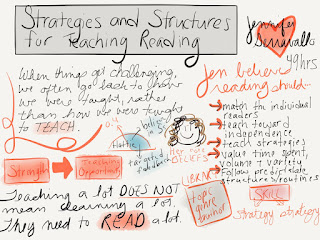 Strategies and Structures
for Teaching Reading
Jennifer
Serravallo
49hrs
When things get challenging,
we often go back to how
we were taught, rather
than how we were taught
to TEACH.
Strength
Teaching
Opportunity
Hattie
targeted
feedback
BELIEFS
LIBRARY
topic
genre
author
Jen believes
reading should...
match for individual
readers
teach toward
independence
teach strategies
value time spent,
volume + variety
follow predictable
structures/routines
SKILL
strategy strategy
Teaching a lot DOES NOT
mean learning a lot.
They need to READ a lot.